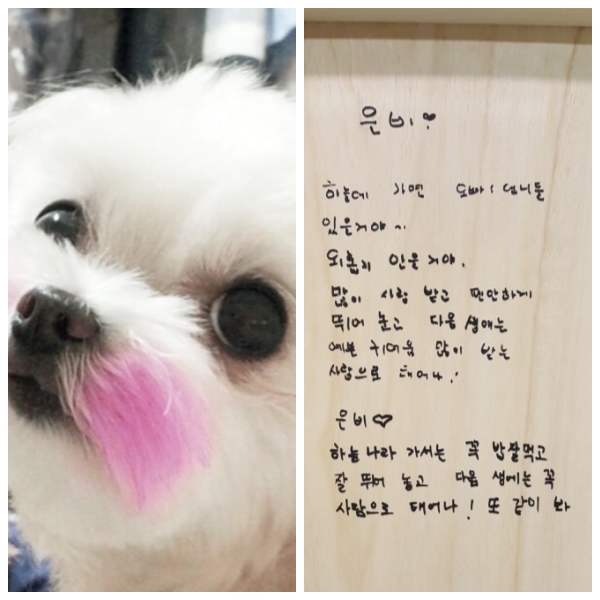 은비♥
하늘에 가면 오빠! 언니들
있을거야~
외롭지 안을거야.
많이 사랑 받고 편안하게
뛰어 놀고 다음 생애는
예쁜 귀여움 많이 받는
사람으로 태어나!
은비♡
하늘나라 가서는 꼭 밥잘먹고
잘 뛰어 놀고 다음 생에는 꼭
사람으로 태어나! 또 같이 봐